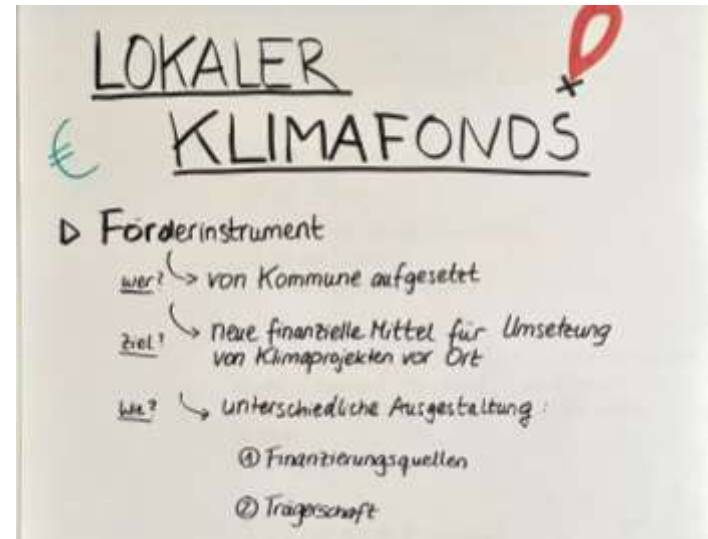 LOKALER
€ KLIMAFONDS
▷ Förderinstrument
wer? ↳ von Kommune aufgesetzt
Ziel? ↳ neue finanzielle Mittel für Umsetzung
von Klimaprojekten vor Ort
wie? ↳ unterschiedliche Ausgestaltung:
① Finanzierungsquellen
② Trägerschaft